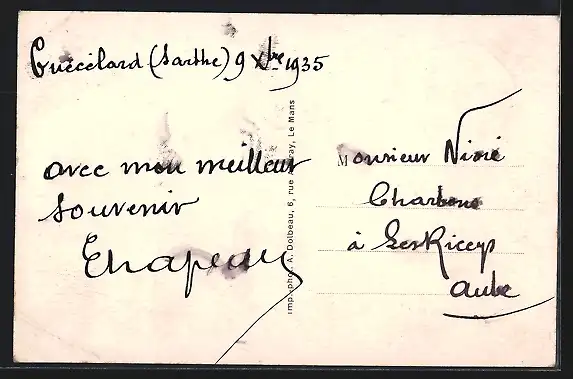 Guécélard (Sarthe) 9 Xbre 1935
avec mon meilleur
souvenir
EChapeau
Imp.-phot. A. Dolbeau, 6, rue ray, Le Mans
Monsieur
Charbone
à Les Riceys
Aube